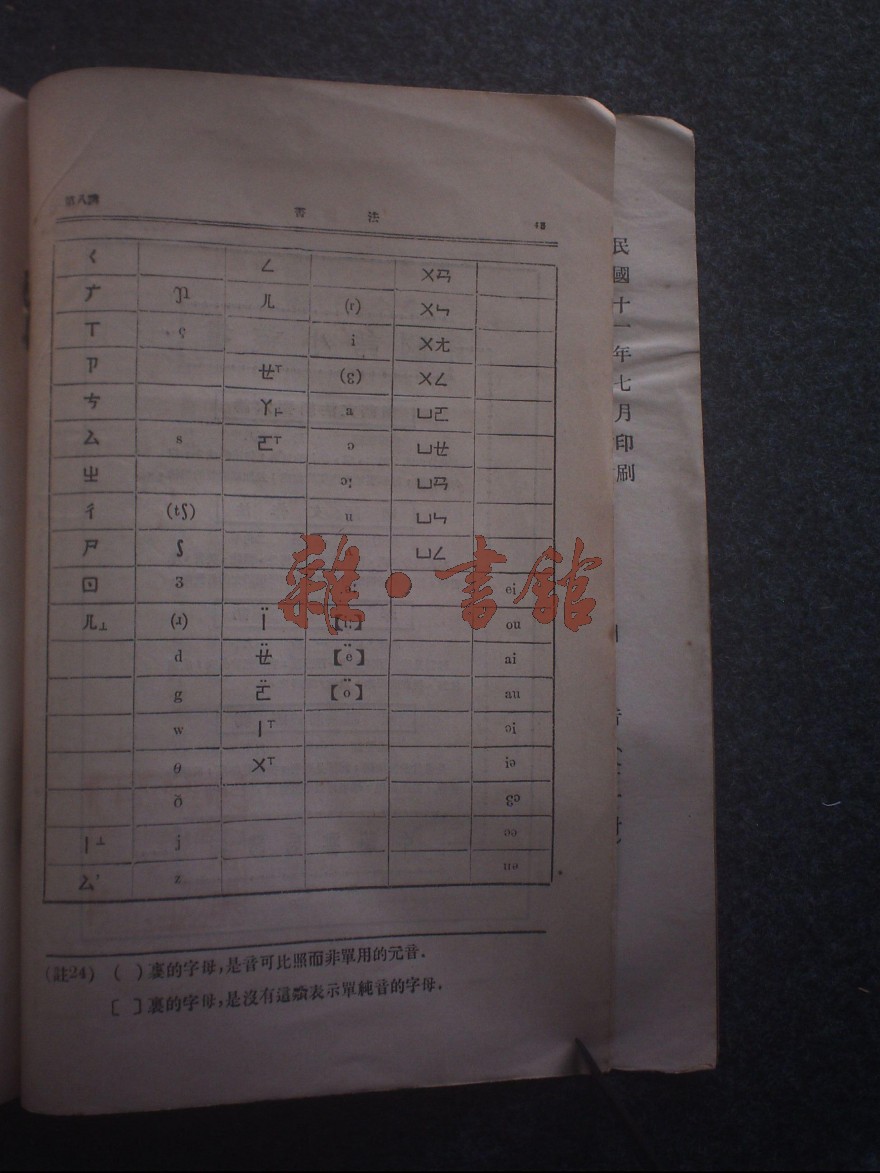 第八講 書 法
ㄑ ㄥ ㄨㄢ
ㄏ ɲ ㄦ (r) ㄨㄣ
ㄒ ç i ㄨㄤ
ㄗ ㄝㄒ (ɛ) ㄨㄥ
ㄘ ㄚ a ㄩㄛ
ㄙ s ㄛㄒ ɔ ㄩㄝ
ㄓ ɔː ㄩㄢ
ㄔ (tʃ) u ㄩㄣ
ㄕ ʃ ㄩㄥ
ㄖ ʒ ei
ㄦ⊥ (ɹ) ou
d ㄝ̈ 【ë】 ai
g ㄛ̈ 【ö】 au
w ㄧㄒ ɔi
θ ㄨㄒ iə
ð ɛə
ㄧ⊥ j ɔə
ㄙ' z uə
雜·書館
(註24) ( ) 裏的字母,是音可比照而非單用的元音.
[ ] 裏的字母,是沒有這樣表示單純音的字母.
民國十一年七月印刷